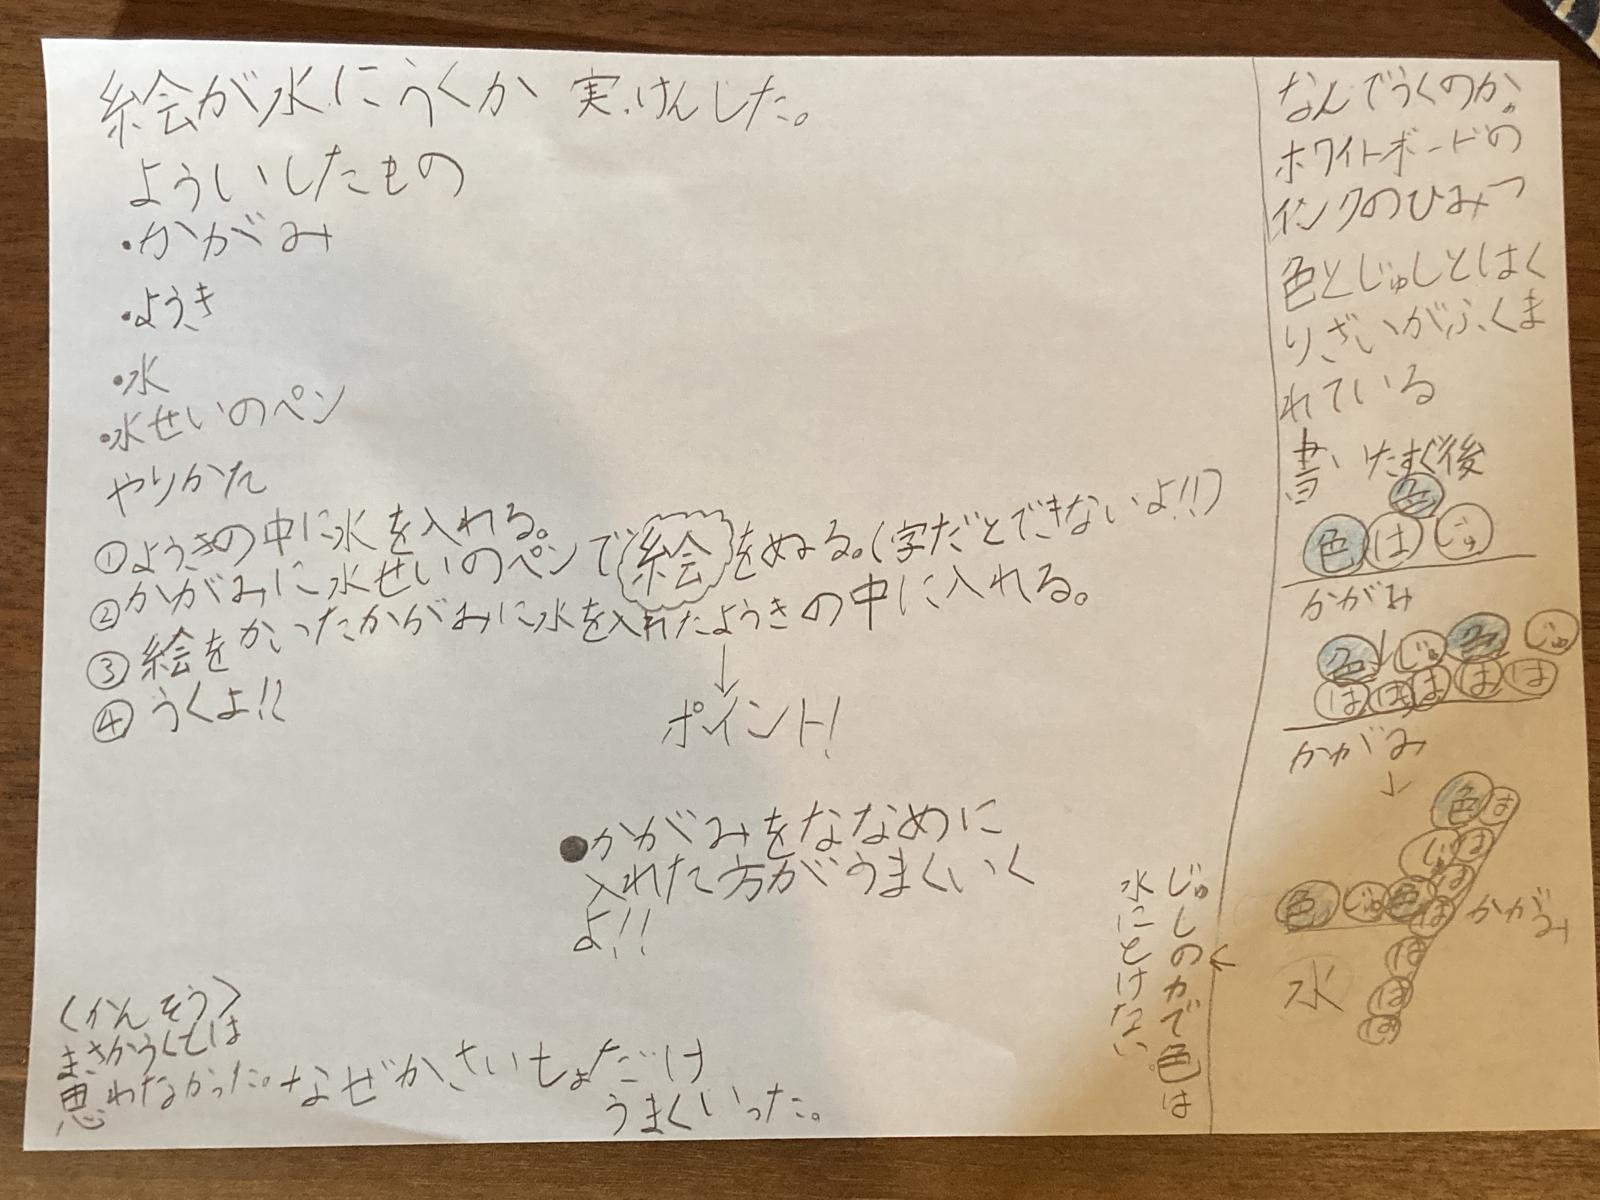 絵が水にうくか 実けんした。
よういしたもの
・かがみ
・ようき
・水
・水せいのペン
やりかた
①ようきの中に水を入れる。
②かがみに水せいのペンで絵をぬる。(字だとできないよ!!)
③絵をかいったかがみに水を入れたようきの中に入れる。
④うくよ!!
↓
ポイント!
●かがみをななめに
入れた方がうまくいく
よ!!
〈かんそう〉
まさかうくとは
思わなかった。なぜかさいしょだけ
うまくいった。
なんでうくのか。
ホワイトボードの
インクのひみつ
色とじゅしとはく
りざいがふくま
れている
書いたすぐ後
色
色 は じゅ
かがみ
色 じゅ 色 じゅ
は は は は は
かがみ
↓
色 は
じゅ は
は
色 じゅ 色 は かがみ
は
水 は
は
←
じゅしの力で色は
水にとけない。